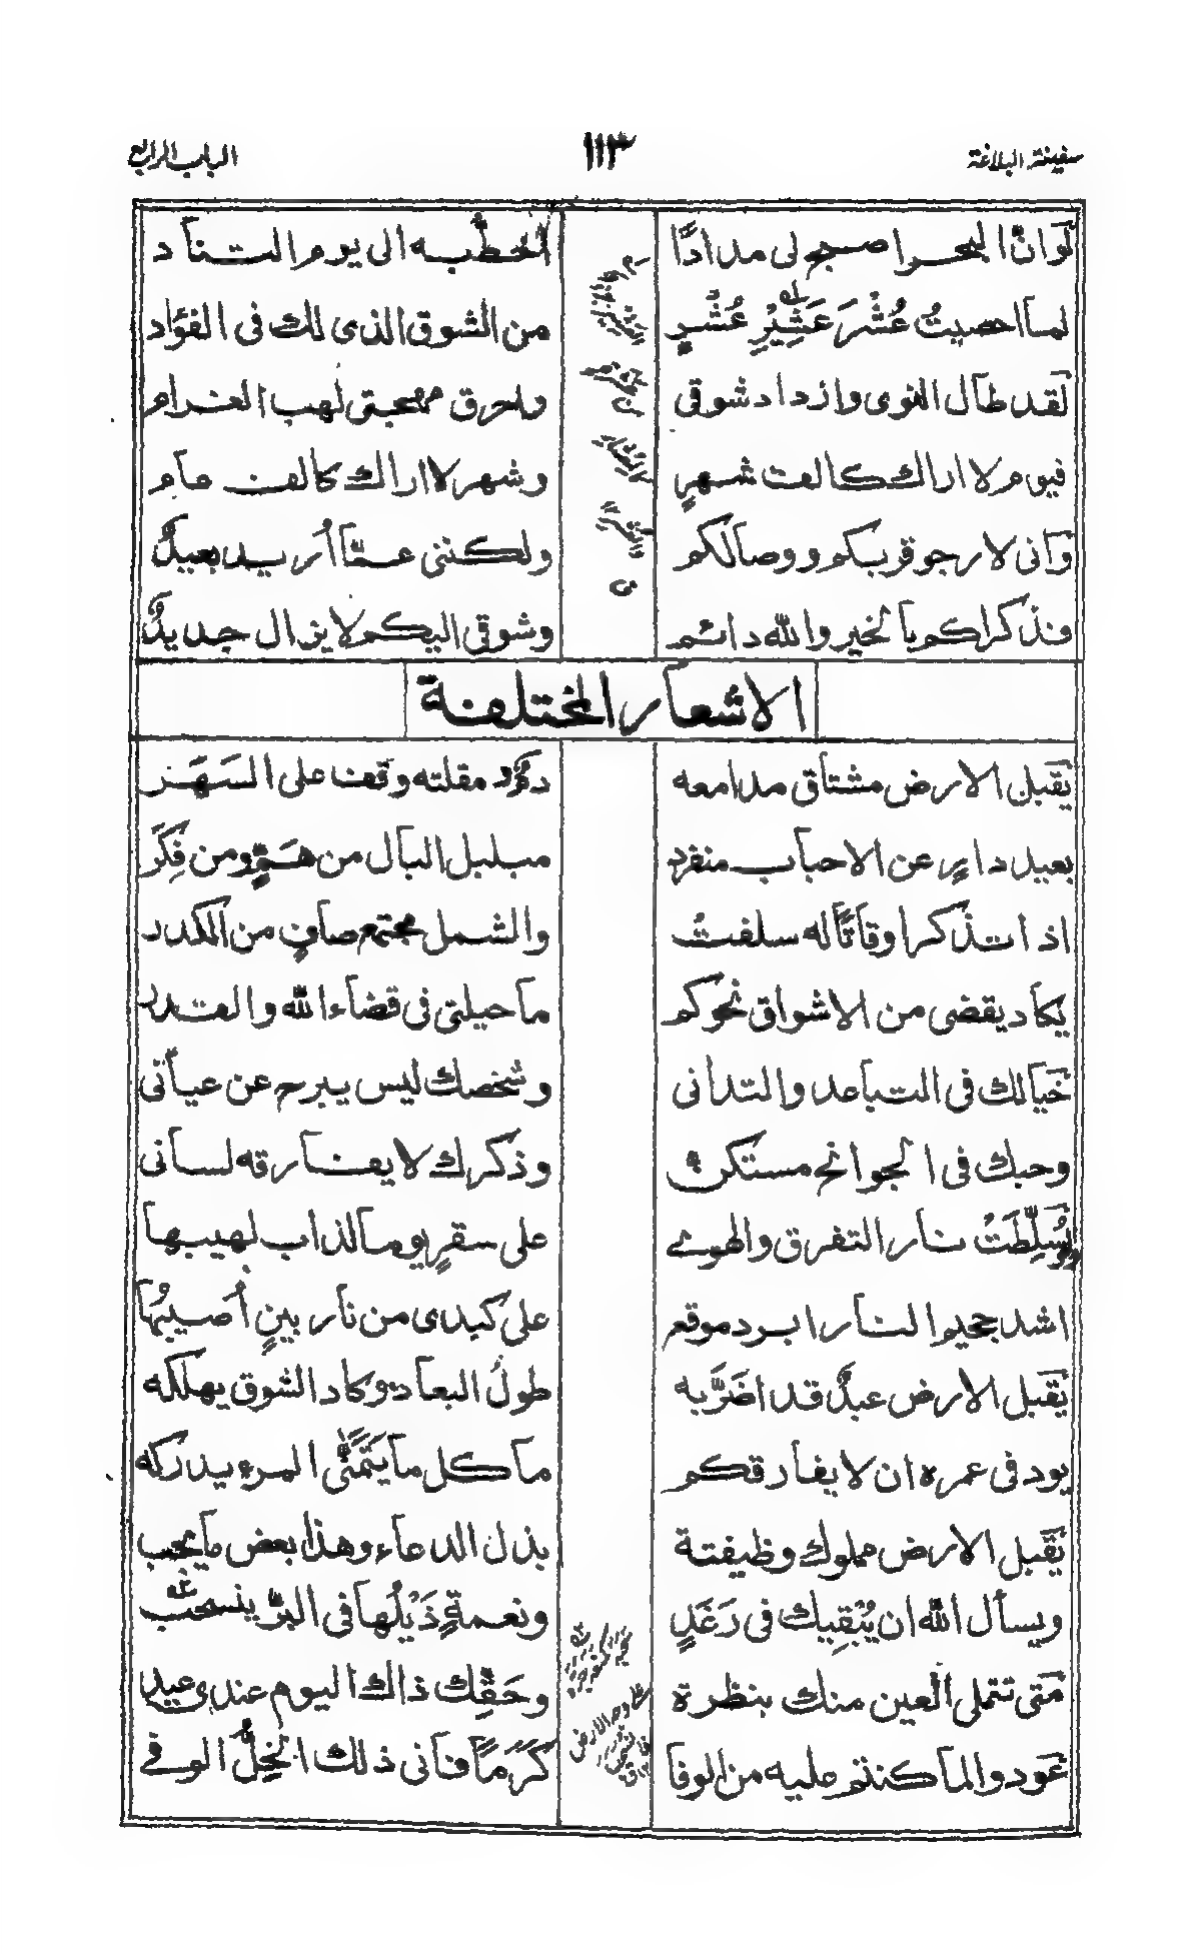 سفينة البلاغة ١١٣ الباب الرابع
لوانّ البحر اصبح لى مدادًا اخطّ به الى يوم التناد
لما احصيتُ عُشْرَ عَشِيْرِ عُشْرٍ من الشوق الذى لك فى الفؤاد
لقد طال النوى وازداد شوقى واحرق مهجتى لهب الغرام
فيوم لا اراك كالف شهرٍ وشهر لا اراك كالف عام
وانى لارجو قربكم ووصالكم ولكننى عمّا أريد بعيدٌ
فذكراكم بالخير والله دائم وشوقى اليكم لا يزال جديدٌ
الاشعار المختلفة
يقبل الارض مشتاق مدامعه مقلته وقفا على السَهَر
بعيد دارٍ عن الاحباب منفرد مبلبل البال من هَمٍّ ومن فِكَر
اذا تذكر اوقاتًا له سلفتْ والشمل مجتمع صافٍ من الكدر
يكاد يقضى من الاشواق نحوكم ما حيلتى فى قضاء الله والقدر
خيالك فى التباعد والتدانى وشخصك ليس يبرح عن عيانى
وحبك فى الجوانح مستكن وذكرك لا يفارقه لسانى
سُلِّطَتْ نار التفرق والهوى على سقرٍ يوما لذاب لهيبها
اشد جحيم النار ابرد موقع على كبدى من نار بينٍ أصيبها
يقبل الارض عبدٌ قد اضَرَّ به طولُ البعاد وكاد الشوق يهلكه
يود فى عمره ان لا يفارقكم ما كل ما يَتَمَنَّى المرء يدركه
يقبل الارض مملوك وظيفتة بذل الدعاء وهذا بعض ما يجب
ويسأل الله ان يُبْقِيك فى رَغَدٍ ونعمةٍ ذَيْلُها فى البرّ ينسحب
متى تتملى العين منك بنظرة وحَقِّك ذاك اليوم عندى عيد
عودوا لما كنتم عليه من الوفا كَرَمًا فانى ذلك الخِلُّ الوفى